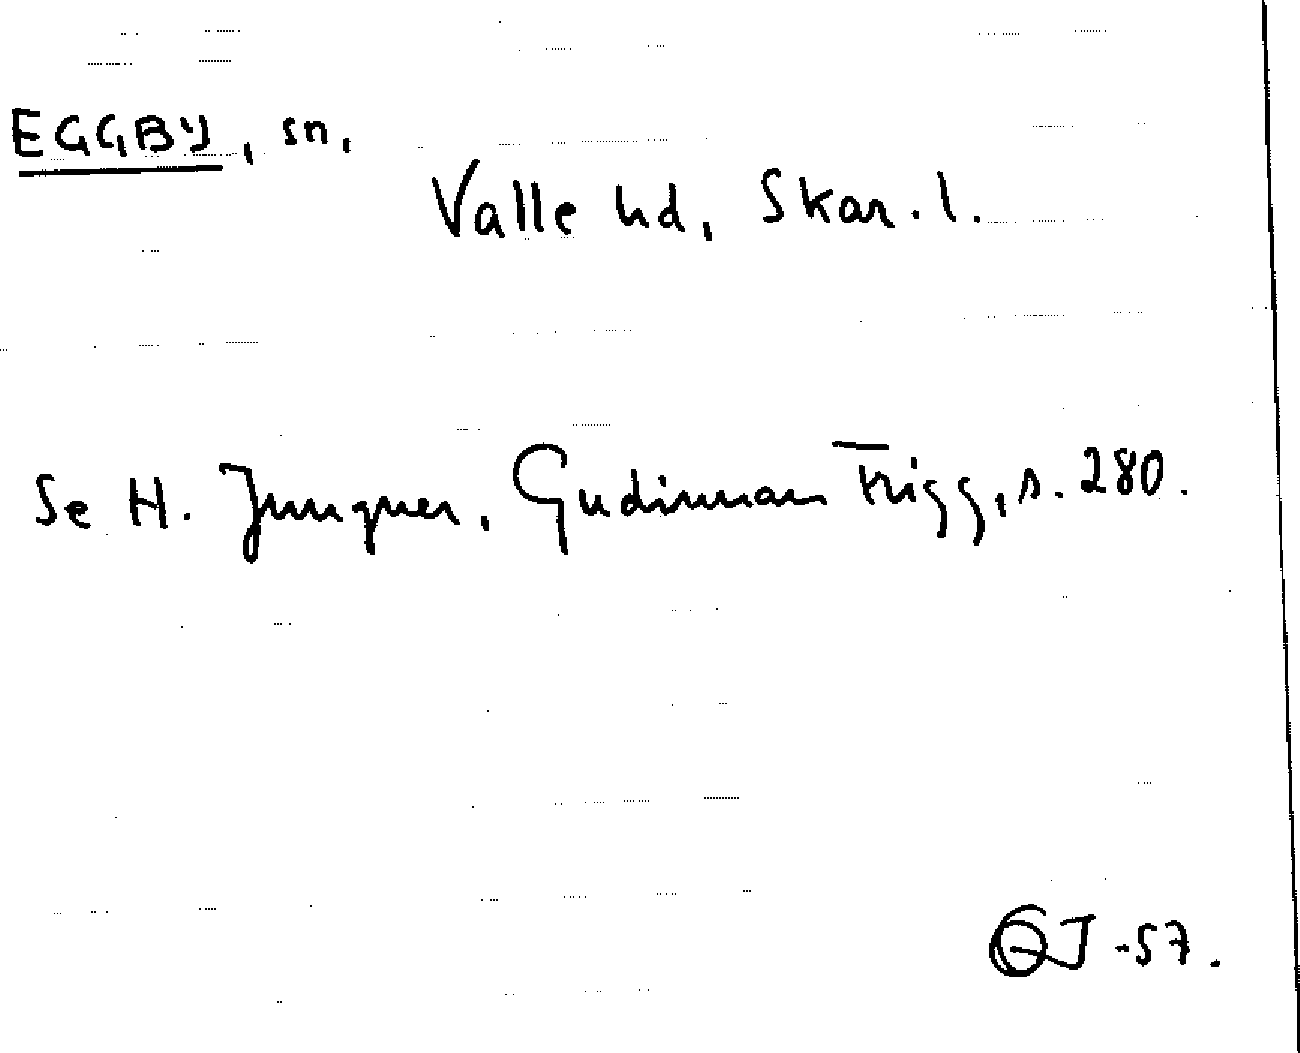 EGGBY, sn,
Valle hd, Skar. l.
Se H. Jungner, Gudinnan Frigg, s. 280.
GJ -57.